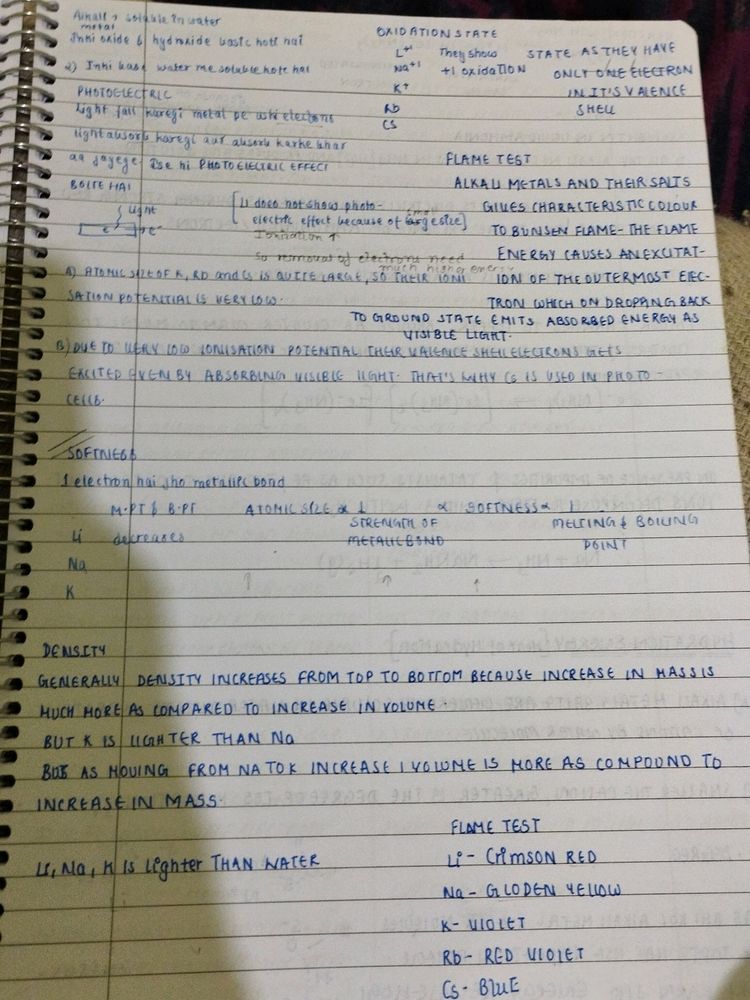 Alkali → soluble in water
metal
Inki oxide & hydroxide basic hote hai
2) Inki base water me soluble hote hai
PHOTOELECTRIC
Light fall karegi metal pe uski electrons
light absorb karegi aur absorb karke bhar
aa jayege ise hi PHOTOELECTRIC EFFECT
BOLTE HAI
Light
e⁻ e⁻
[Li does not show photo-
electric effect because of size]
Ionisation ↑
So removal of electrons need
much higher energy
OXIDATION STATE
L+1 They show STATE AS THEY HAVE
Na+1 +1 OXIDATION ONLY ONE ELECTRON
K+ IN IT'S VALENCE
Rb SHELL
Cs
FLAME TEST
ALKALI METALS AND THEIR SALTS
GIVES CHARACTERISTIC COLOUR
TO BUNSEN FLAME- THE FLAME
ENERGY CAUSES AN EXCITAT-
ION OF THE OUTERMOST ELEC-
TRON WHICH ON DROPPING BACK
TO GROUND STATE EMITS ABSORBED ENERGY AS
VISIBLE LIGHT.
A) ATOMIC SIZE OF K, RD and Cs IS QUITE LARGE, SO THEIR IONI
SATION POTENTIAL IS VERY LOW.
B) DUE TO VERY LOW IONISATION POTENTIAL THEIR VALENCE SHELL ELECTRONS GETS
EXCITED EVEN BY ABSORBING VISIBLE LIGHT. THAT'S WHY Cs IS USED IN PHOTO-
CELLS.
SOFTNESS
1 electron hai jho metallic bond
M.PT & B.PT ATOMIC SIZE ∝ 1 ∝ SOFTNESS ∝ 1
Li decreases STRENGTH OF MELTING & BOILING
METALIC BOND POINT
Na
K ↑ ↑ ↑
DENSITY
GENERALLY DENSITY INCREASES FROM TOP TO BOTTOM BECAUSE INCREASE IN MASS IS
MUCH MORE AS COMPARED TO INCREASE IN VOLUME
BUT K IS LIGHTER THAN Na
BUT AS MOVING FROM NA TO K INCREASE I VOLUME IS MORE AS COMPOUND TO
INCREASE IN MASS.
Li, Na, K is Lighter THAN WATER
FLAME TEST
Li - CRIMSON RED
Na - GLODEN YELLOW
K - VIOLET
Rb - RED VIOLET
Cs - BLUE